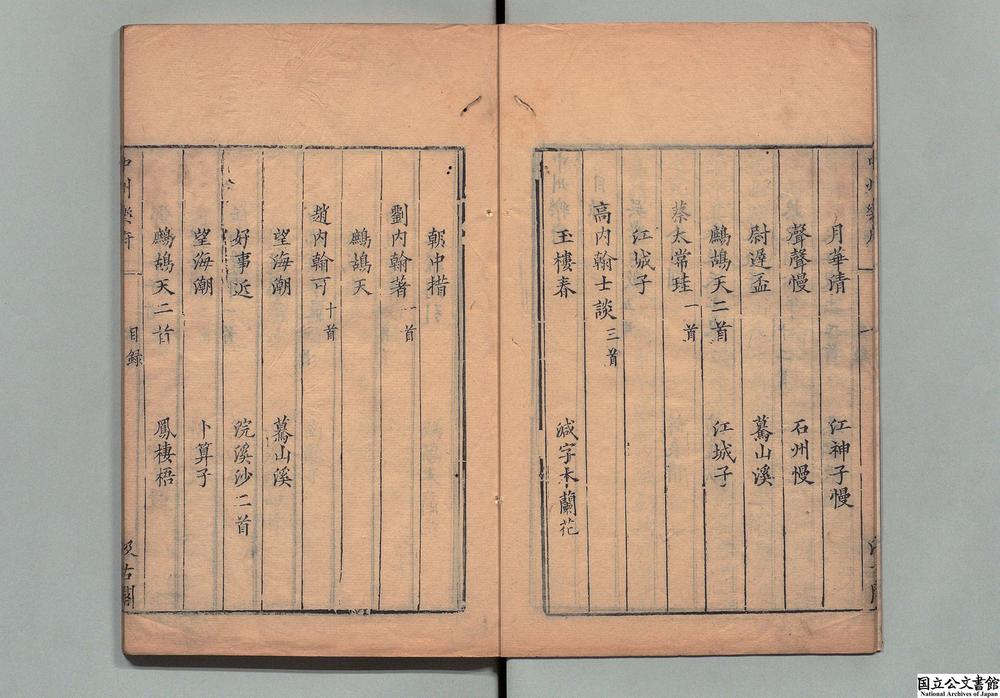 月華清 江神子慢
聲聲慢 石州慢
尉遲盃 驀山溪
鷓鴣天二首 江城子
蔡太常珪一首
江城子
高內翰士談三首
玉樓春 減字木蘭花
朝中措
劉內翰著一首
鷓鴣天
趙內翰可十首
望海潮 驀山溪
好事近 浣溪沙二首
望海潮 卜算子
鷓鴣天二首 鳳棲梧
中州樂府 目錄 汲古閣
国立公文書館
National Archives of Japan